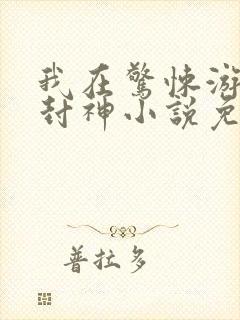 我在驚悚游
封神小說免
普拉多